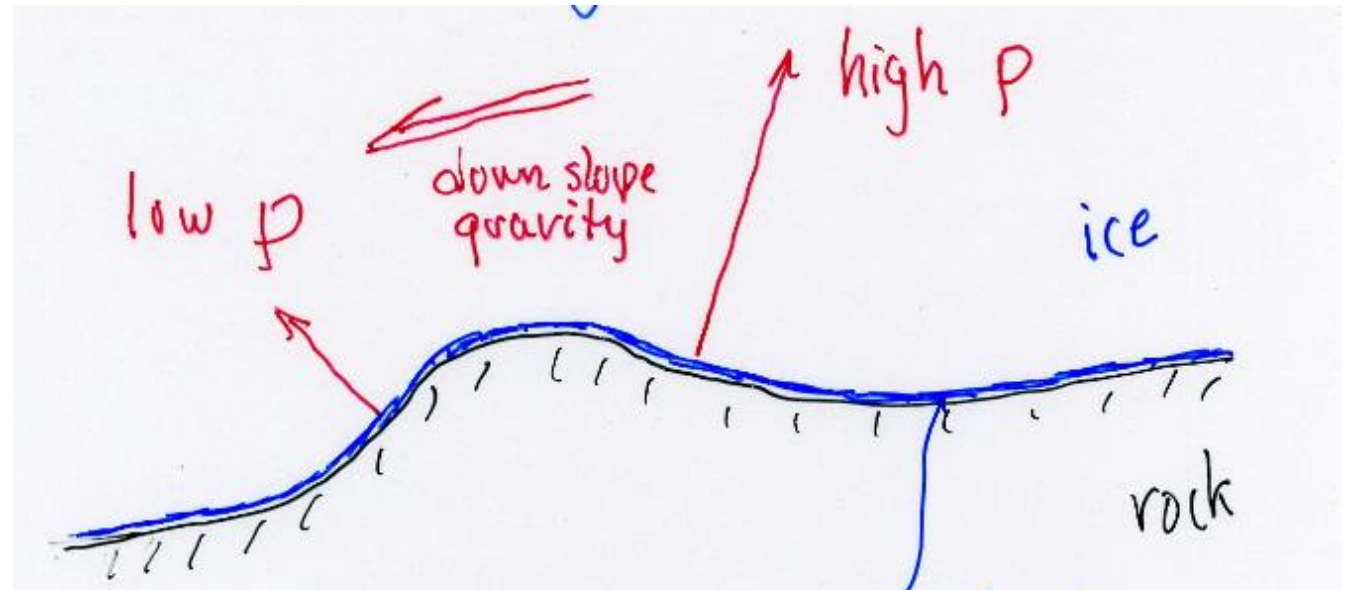 high p
down slope
gravity
low p
ice
rock